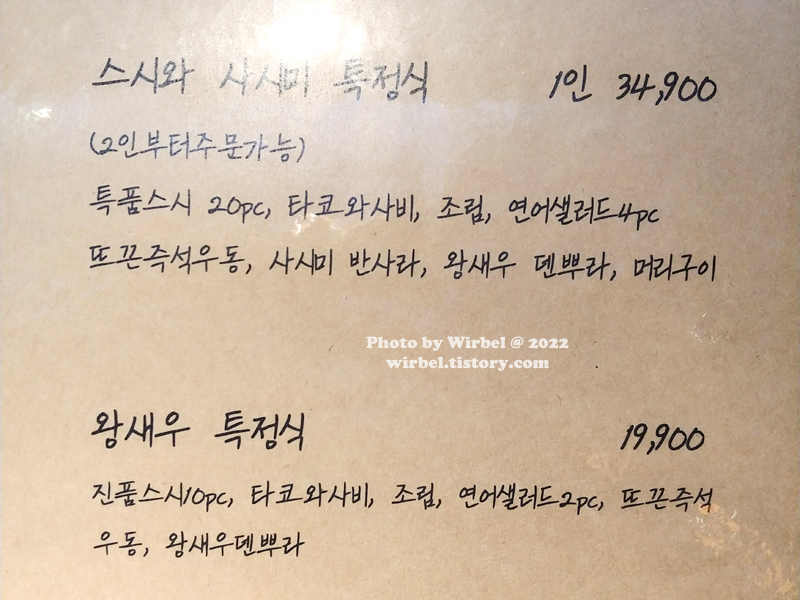 스시와 사시미 특정식 1인 34,900
(2인부터주문가능)
특품스시 20pc, 타코와사비, 조림, 연어샐러드4pc
뜨끈즉석우동, 사시미 반사라, 왕새우 덴뿌라, 머리구이
Photo by Wirbel @ 2022
wirbel.tistory.com
왕새우 특정식 19,900
진품스시10pc, 타코와사비, 조림, 연어샐러드2pc, 뜨끈즉석
우동, 왕새우덴뿌라